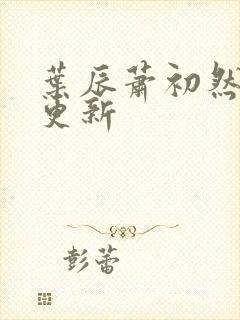 葉辰蕭初然
更新
彭蕾